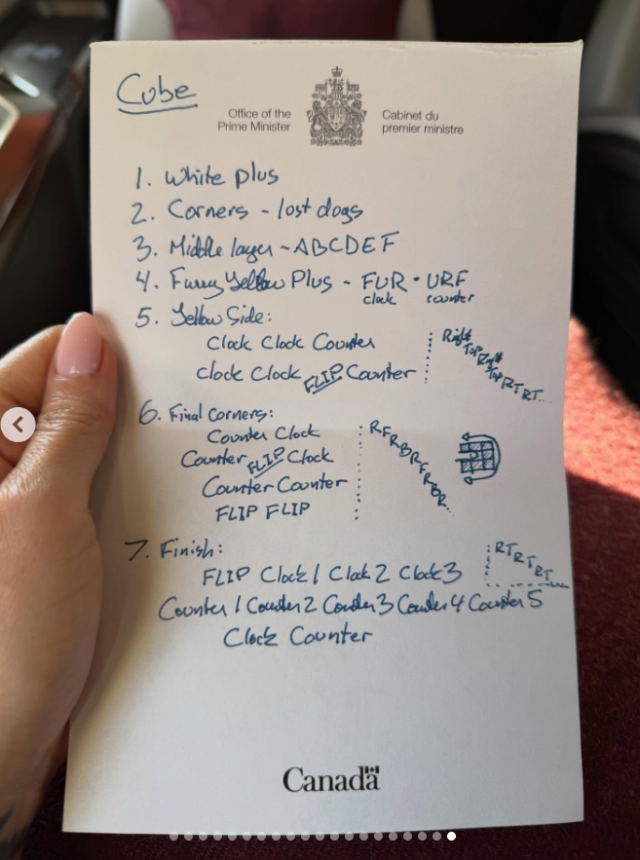 Cube
Office of the
Prime Minister
Cabinet du
premier ministre
1. White plus
2. Corners - lost dogs
3. Middle layer - ABCDEF
4. Furry Yellow Plus - FUR · URF
clock counter
5. Yellow Side:
Clock Clock Counter
Clock Clock FLIP Counter
Right Top Right Top RTRT...
6. Final Corners:
Counter Clock
Counter FLIP Clock
Counter Counter
FLIP FLIP
RFRBRFRBR...
7. Finish:
FLIP Clock 1 Clock 2 Clock 3
RTRTRT
Counter 1 Counter 2 Counter 3 Counter 4 Counter 5
Clock Counter
Canada